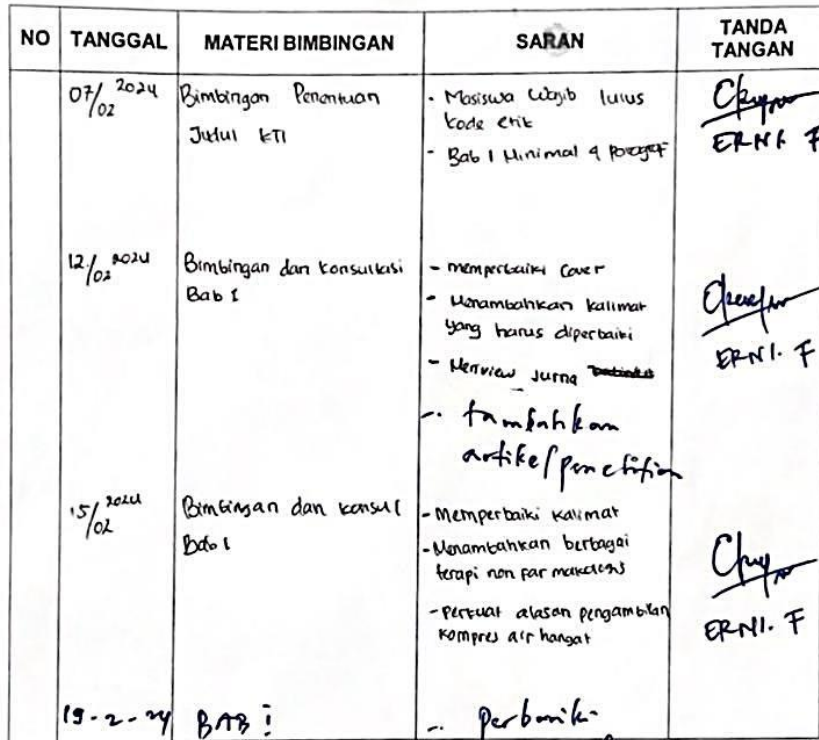 NO TANGGAL MATERI BIMBINGAN SARAN TANDA TANGAN
07/02 2024 Bimbingan Penentuan - Masiswa Wajib lulus
Judul KTI kode etik
- Bab 1 Minimal 4 paragraf
ERNI. F
12/02 2024 Bimbingan dan konsultasi - memperbaiki cover
Bab 1 - Menambahkan kalimat
yang harus diperbaiki
- Merview Jurna
ERNI. F
- tambahkan
artikel/penelitian
15/02 2024 Bimbingan dan konsul - Memperbaiki kalimat
Bab 1 - Menambahkan berbagai
terapi non farmakologis
- perkuat alasan pengambilan
kompres air hangat
ERNI. F
19-2-24 BAB I - Perbaiki